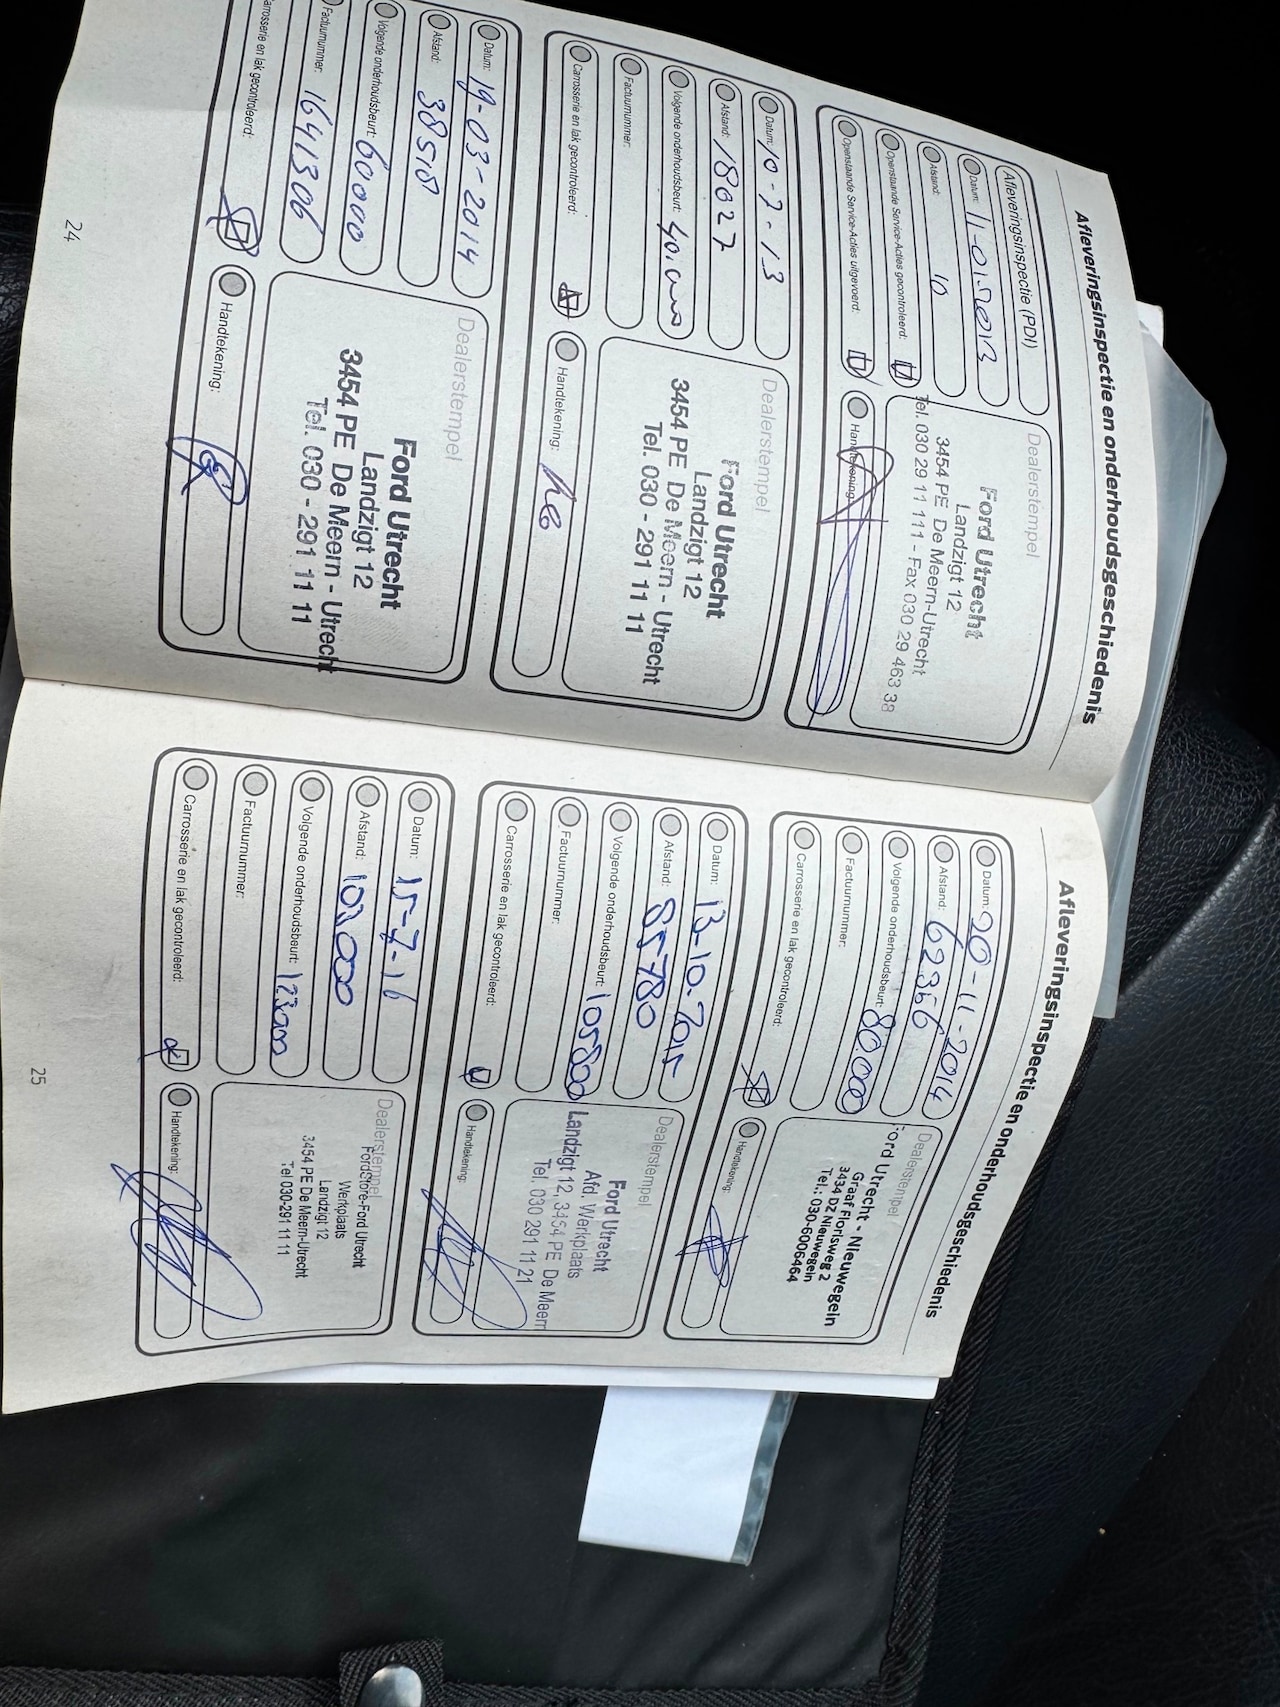 Afleveringsinspectie en onderhoudsgeschiedenis
Afleveringsinspectie (PDI)
Datum: 11-01-2013
Afstand: 10
Openstaande Service-Acties gecontroleerd:
Openstaande Service-Acties uitgevoerd:
Dealerstempel
Ford Utrecht
Landzigt 12
3454 PE De Meern-Utrecht
Tel. 030 29 11 111 - Fax 030 29 463 38
Handtekening:
Datum: 10-7-13
Afstand: 18027
Volgende onderhoudsbeurt: 40.000
Factuurnummer:
Carrosserie en lak gecontroleerd:
Dealerstempel
Ford Utrecht
Landzigt 12
3454 PE De Meern - Utrecht
Tel. 030 - 291 11 11
Handtekening:
Datum: 19-03-2014
Afstand: 38518
Volgende onderhoudsbeurt: 60000
Factuurnummer: 1641306
Carrosserie en lak gecontroleerd:
Dealerstempel
Ford Utrecht
Landzigt 12
3454 PE De Meern - Utrecht
Tel. 030 - 291 11 11
Handtekening:
24
Afleveringsinspectie en onderhoudsgeschiedenis
Datum: 20-11-2014
Afstand: 62356
Volgende onderhoudsbeurt: 80000
Factuurnummer:
Carrosserie en lak gecontroleerd:
Dealerstempel
Ford Utrecht - Nieuwegein
Graaf Florisweg 2
3434 DZ Nieuwegein
Tel.: 030-6006464
Handtekening:
Datum: 13-10-2015
Afstand: 85780
Volgende onderhoudsbeurt: 105800
Factuurnummer:
Carrosserie en lak gecontroleerd:
Dealerstempel
Ford Utrecht
Afd. Werkplaats
Landzigt 12, 3454 PE De Meern
Tel. 030 291 11 21
Handtekening:
Datum: 15-7-16
Afstand: 103.000
Volgende onderhoudsbeurt: 123000
Factuurnummer:
Carrosserie en lak gecontroleerd:
Dealerstempel
FordStore-Ford Utrecht
Werkplaats
Landzigt 12
3454 PE De Meern-Utrecht
Tel 030-291 11 11
Handtekening:
25